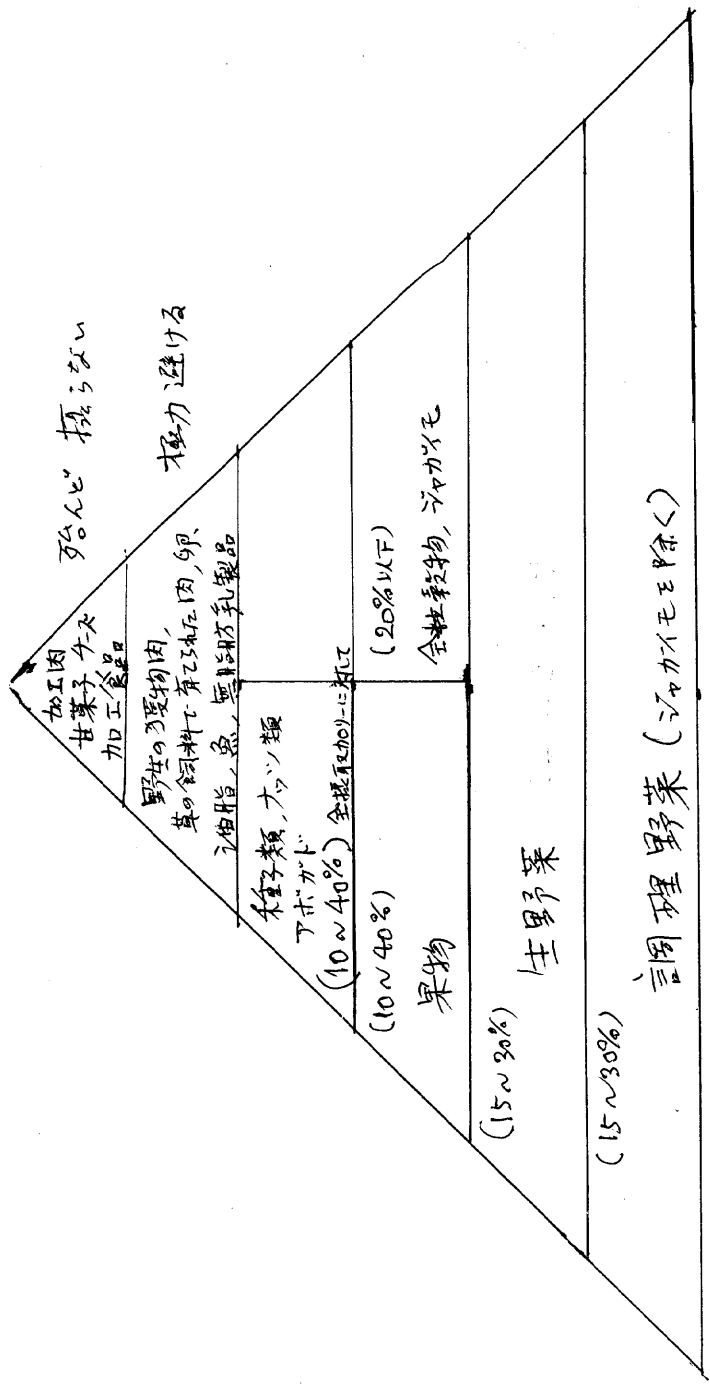 殆んど 摂らない
加工肉
甘菓子 チーズ
加工食品
極力 避ける
野生の獲物肉,
草の飼料で育てられた肉, 卵、
油脂, 魚, 無脂肪乳製品
種子類, ナッツ類
アボガド
(10~40%) 全摂取カロリーに対して
(10~40%)
果物
(20%以下)
全粒穀物, ジャガイモ
(15~30%)
生野菜
(15~30%)
調理野菜 (ジャガイモを除く)